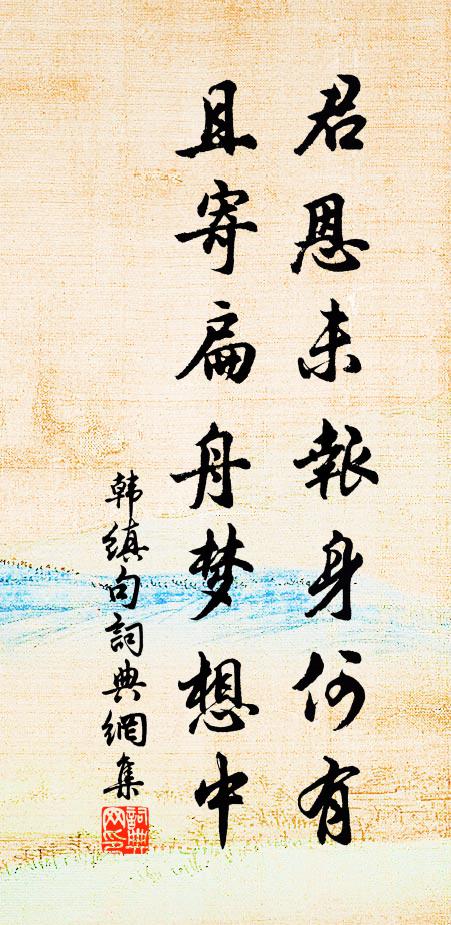 君恩未報身何有
且寄扁舟梦想中
韩缜句詞典網集
詞典网印